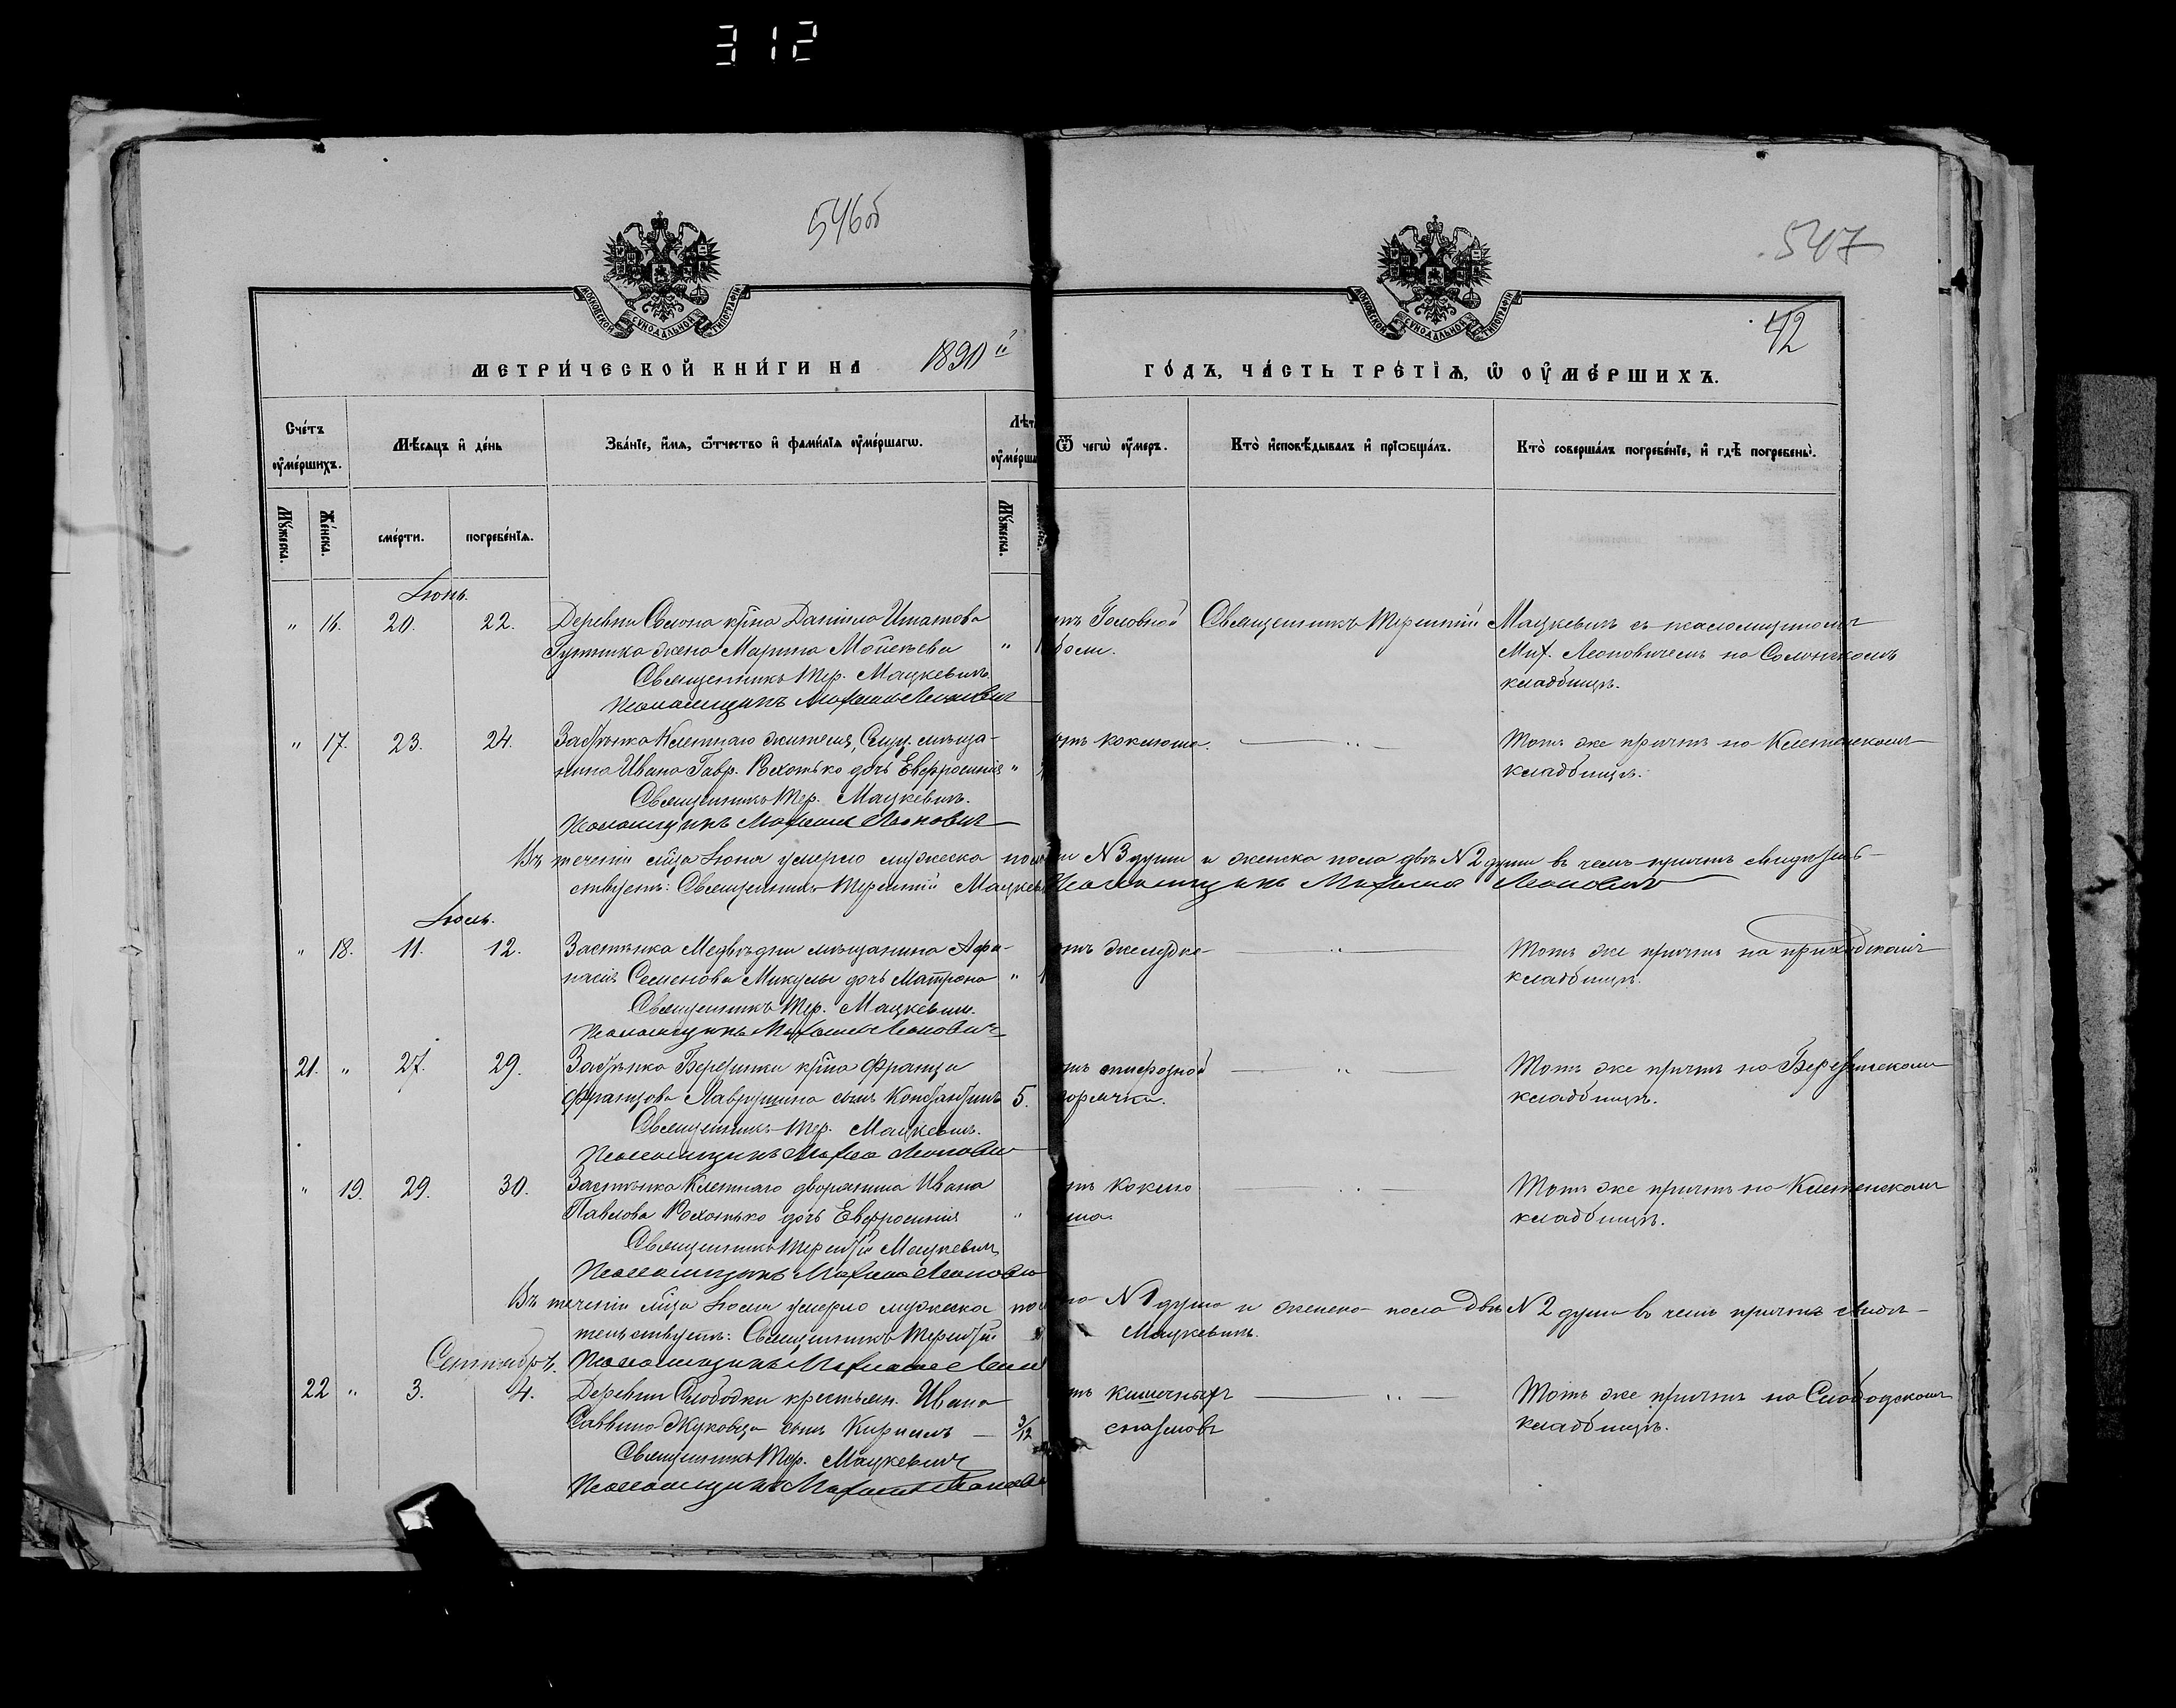 312
546об
547
42
МОСКОВСКОЙ СѴНОДАЛЬНОЙ ТИПОГРАФІИ
МОСКОВСКОЙ СѴНОДАЛЬНОЙ ТИПОГРАФІИ
МЕТРИ́ЧЕСКОЙ КНИ́ГИ НА 1890й
ГО́ДЪ, ЧА́СТЬ ТРЕ́ТІѦ, Ѡ҆ ОУ҆МЕ́РШИХЪ.
Сче́тъ оу҆ме́ршихъ.
Мѣ́сѧцъ и҆ де́нь
Зва́нїе, и҆́мѧ, ѻ҆́тчество и҆ фами́лїѧ оу҆ме́ршагѡ.
Лѣт
оу҆ме́рша
Ѿ чегѡ̀ оу҆́меръ.
Кто̀ и҆сповѣ́дывалъ и҆ прїѡбща́лъ.
Кто̀ соверша́лъ погребе́нїе, и҆ гдѣ̀ погребены̀.
Мꙋ́жеска.
Же́нска.
сме́рти.
погребе́нїѧ.
Мꙋ́жеска.
Іюнь.
" 16. 20. 22. Деревни Солона кр̃на Даніила Игнатова
жена Марина Мойсѣева "
Священникъ Тер. Мацкевичъ
Псаломщикъ Михаилъ Леонович
тъ Головной
боли.
Священникъ Терентій Мацкевичъ съ псаломщикомъ
Мих. Леоновичемъ на Солонскомъ
кладбищѣ.
" 17. 23. 24. Застѣнка Клетнаго жителя, Слуц. мѣща-
нина Ивана Гавр. Рахотько дочь Евфросинія "
Священникъ Тер. Мацкевичъ.
Псаломщикъ Михаилъ Леонович
отъ коклюша.
Тотъ же причтъ на Клетенскомъ
кладбищѣ.
Въ теченіи м̃ца Іюня умерло мужеска по и N 3 души и женска пола двѣ N 2 души въ чемъ причтъ свидѣтель-
ствуетъ: Священникъ Терентій Мацкев Псаломщикъ Михаилъ Леонович
Іюль.
" 18. 11. 12. Застѣнка Медвѣдни мѣщанина Афа-
насія Семенова Микулы дочь Матрона "
Священникъ Тер. Мацкевич.
Псаломщикъ Михаилъ Леонович
отъ желудка
Тотъ же причтъ на приходскомъ
кладбищѣ.
21. " 27. 29. Застѣнка Березинки кр̃на Франца
Францова Лаврушина сынъ Константинъ 5.
Священникъ Тер. Мацкевичъ.
Псаломщикъ Михаил Леонович
горячки.
Тотъ же причтъ на Березинскомъ
кладбищѣ.
" 19. 29. 30. Застѣнка Клетнаго дворянина Ивана
Павлова Рахотько дочь Евфросинія "
Священникъ Терентій Мацкевичъ
Псаломщикъ Михаилъ Леонович
тъ коклю
ша.
Тотъ же причтъ на Клетенскомъ
кладбищѣ.
Въ теченіи м̃ца Іюля умерло мужеска пол но N 1 душа и женска пола двѣ N 2 души въ чемъ причтъ свидѣ-
тельствуетъ: Священникъ Терентій Мацкевичъ.
Псаломщикъ Михаилъ Леон
Сентябрь.
22 " 3. 4. Деревни Слободки крестьян. Ивана
Саввина Жуковца сынъ Кириллъ — 3/12
Священникъ Тер. Мацкевич
Псаломщикъ Михаилъ Леонови
тъ кишечныхъ
спазмовъ
Тотъ же причтъ на Слободскомъ
кладбищѣ.